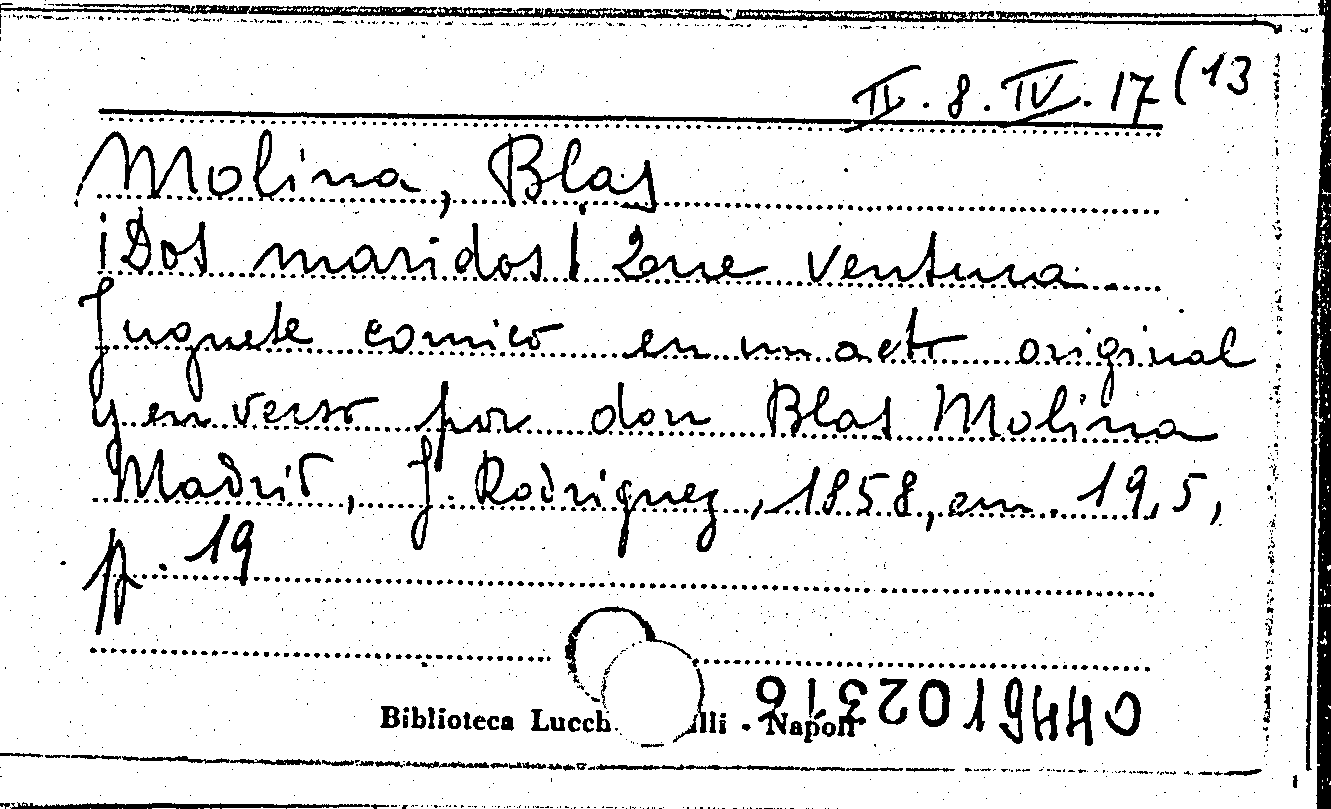 II. 8. IV. 17 (13
Molina, Blas
¡Dos maridos! Que ventura.
Juguete comico en un acto original
y en verso por don Blas Molina
Madrid, J. Rodriguez, 1858, cm. 19,5,
p. 19
Biblioteca Lucch lli - Napoli